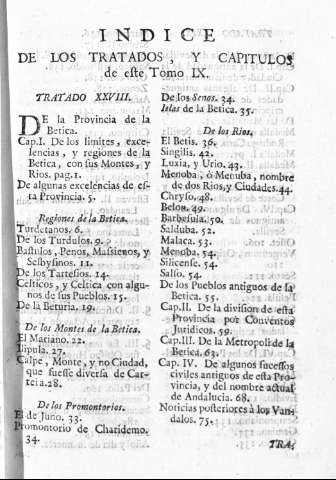 INDICE
DE LOS TRATADOS, Y CAPITULOS
de este Tomo IX.
TRATADO XXVIII.
DE la Provincia de la
Betica.
Cap.I. De los limites, exce-
lensias, y regiones de la
Betica, con sus Montes, y
Rios. pag.1.
De algunas excelencias de es-
ta Provincia. 5.
Regiones de la Betica.
Turdetanos. 6.
De los Turdulos. 9.
Bastulos, Penos, Massienos, y
Selbysinos. 11.
De los Tartesios. 14.
Celticos, y Celtica con algu-
nos de sus Pueblos. 15.
De la Beturia. 19.
De los Montes de la Betica.
El Mariano. 22.
Ilipula. 27.
Calpe, Monte, y no Ciudad,
que fuesse diversa de Car-
teia. 28.
De los Promontorios.
El de Juno. 33.
Promontorio de Charidemo.
34.
De los Senos. 34.
Islas de la Betica. 35.
De los Rios.
El Betis. 36.
Singilis. 42.
Luxia, y Urio. 43.
Menoba, ò Metuba, nombre
de dos Rios, y Ciudades. 44.
Chryso. 48.
Belon. 49.
Barbesula. 50.
Salduba. 52.
Malaca. 53.
Menoba. 54.
Silicense. 54.
Salso. 54.
De los Pueblos antiguos de la
Betica. 55.
Cap.II. De la division de esta
Provincia por Conventos
Juridicos. 59.
Cap.III. De la Metropoli de la
Betica. 63.
Cap. IV. De algunos sucessos
civiles antiguos de esta Pro-
vincia, y del nombre actual
de Andalucia. 68.
Noticias posteriores à los Van-
dalos. 75.
TRA-